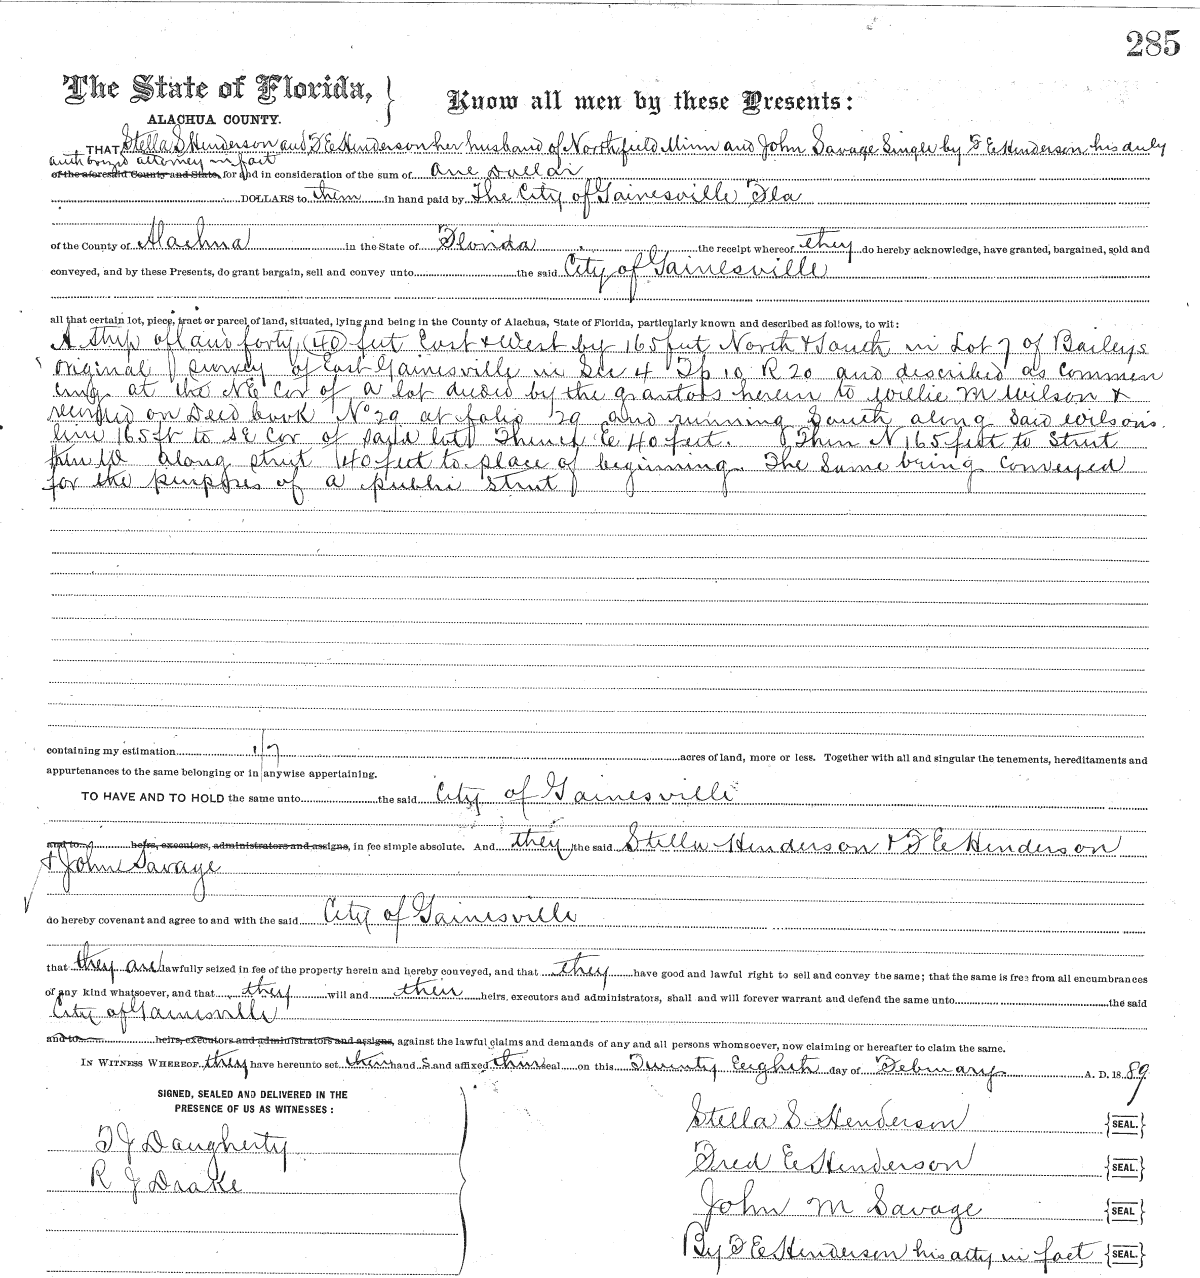 285
The State of Florida,
ALACHUA COUNTY.
Know all men by these Presents:
THAT Stella S Henderson and F E Henderson her husband of Northfield Minn and John Savage Single by F E Henderson his duly
authorized attorney in fact
of the aforesaid County and State, for and in consideration of the sum of one Dollar
DOLLARS to them in hand paid by The City of Gainesville Fla
of the County of Alachua in the State of Florida the receipt whereof they do hereby acknowledge, have granted, bargained, sold and
conveyed, and by these Presents, do grant bargain, sell and convey unto the said City of Gainesville
all that certain lot, piece, tract or parcel of land, situated, lying and being in the County of Alachua, State of Florida, particularly known and described as follows, to wit:
A strip of land forty (40) feet East & West by 165 feet North & South in Lot 7 of Baileys
original survey of East Gainesville in Sec 4 Tp 10 R 20 and described as Commen
cing at the NE Cor of a lot deeded by the grantors herein to Willie M Wilson &
recorded on Deed book No 29 at folio 29 and running South along said Wilsons
line 165 ft to SE Cor of said lot Thence E 40 feet. Then N 165 feet to Street
then W along street 40 feet to place of beginning. The Same being Conveyed
for the purposes of a public Street
containing my estimation 1/7 acres of land, more or less. Together with all and singular the tenements, hereditaments and
appurtenances to the same belonging or in anywise appertaining.
TO HAVE AND TO HOLD the same unto the said City of Gainesville
and to heirs, executors, administrators and assigns, in fee simple absolute. And they the said Stella Henderson & F E Henderson
& John Savage
do hereby covenant and agree to and with the said City of Gainesville
that they are lawfully seized in fee of the property herein and hereby conveyed, and that they have good and lawful right to sell and convey the same; that the same is free from all encumbrances
of any kind whatsoever, and that they will and their heirs, executors and administrators, shall and will forever warrant and defend the same unto the said
City of Gainesville
and to heirs, executors and administrators and assigns, against the lawful claims and demands of any and all persons whomsoever, now claiming or hereafter to claim the same.
IN WITNESS WHEREOF they have hereunto set their hand S and affixed their seal on this Twenty Eighth day of February A. D. 1889
SIGNED, SEALED AND DELIVERED IN THE
PRESENCE OF US AS WITNESSES:
T J Daugherty
R J Drake
Stella S Henderson {SEAL.}
Fred E Henderson {SEAL.}
John M Savage {SEAL}
By F E Henderson his atty in fact {SEAL.}